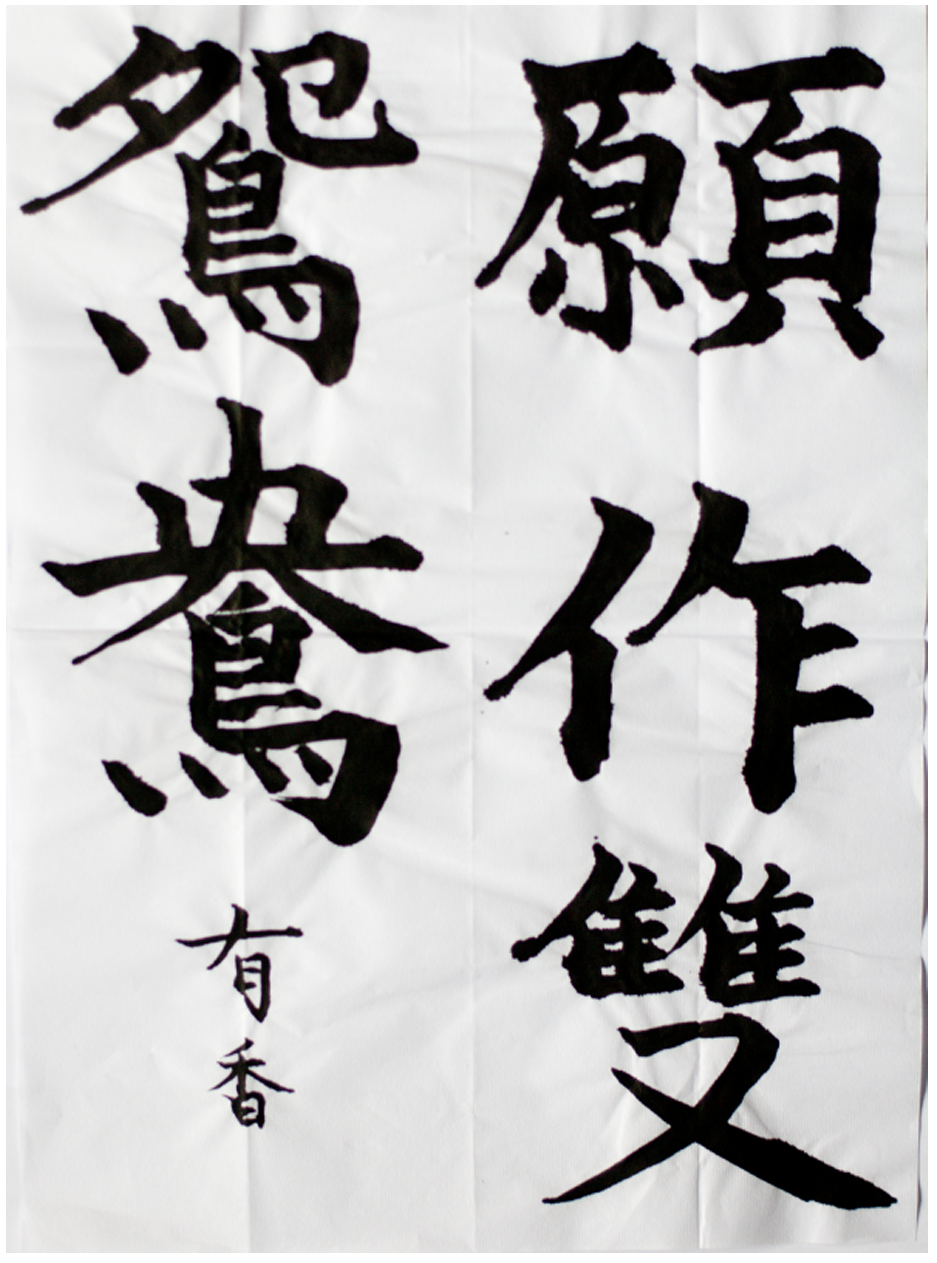 願作雙
鴛鴦
有香